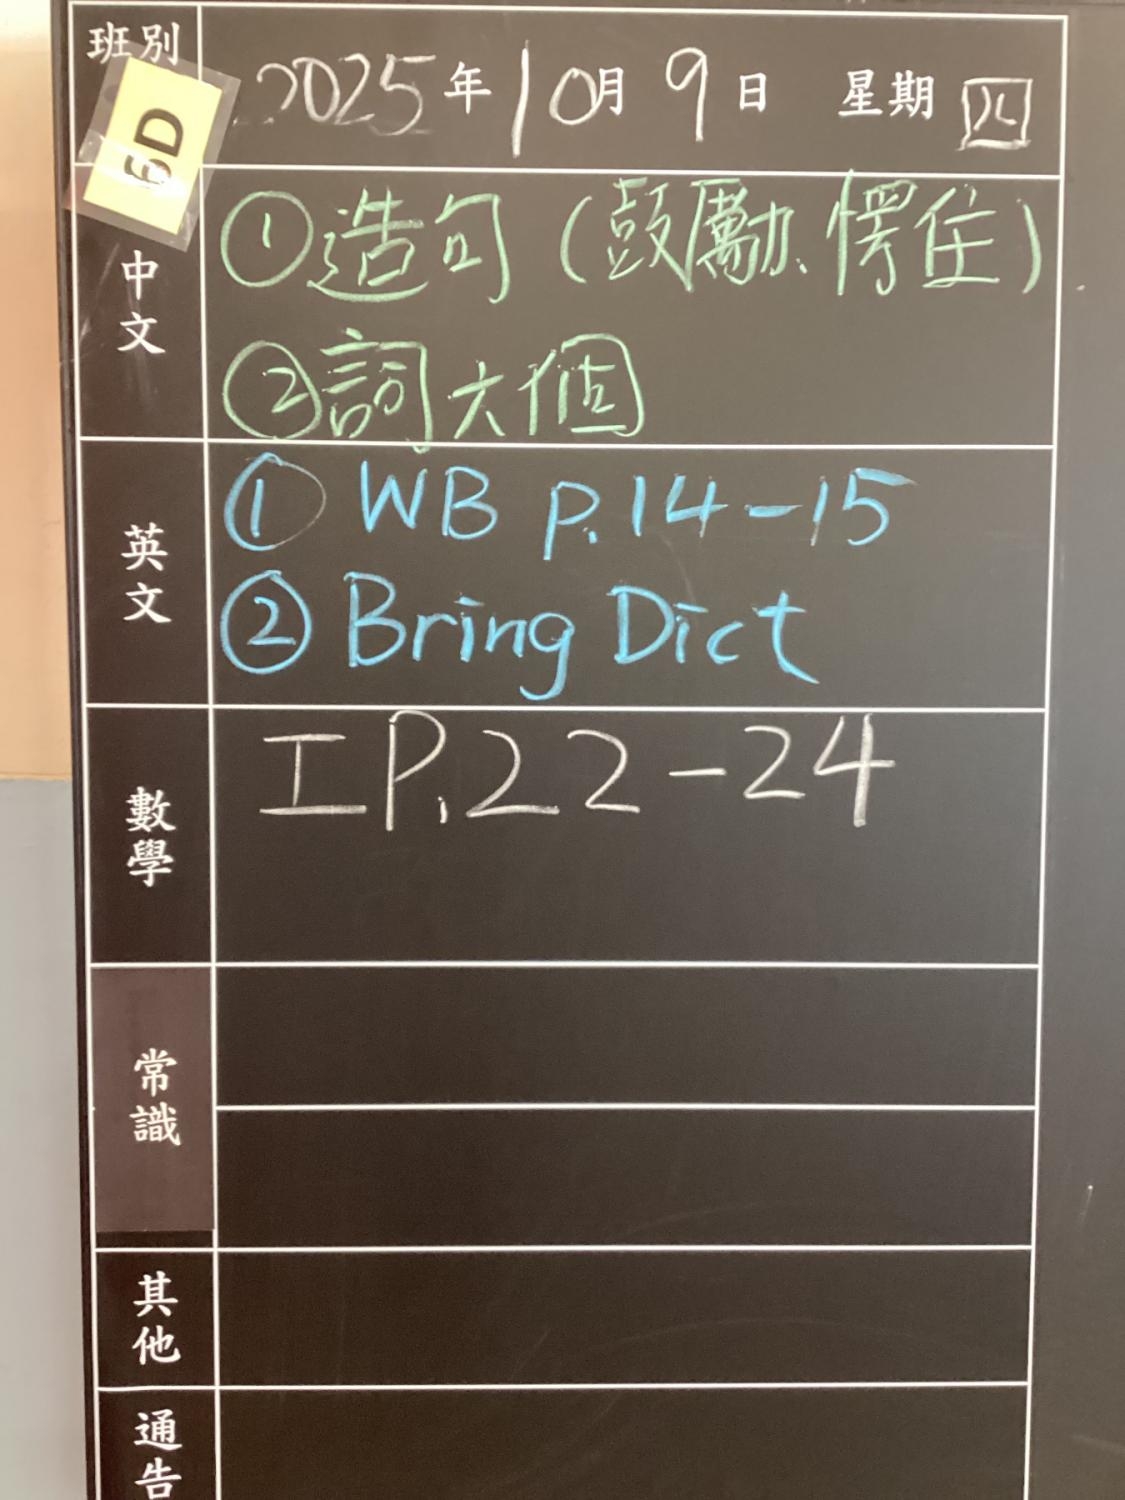 班別
6D
2025年10月9日 星期四
中文
①造句(鼓勵、愕住)
②詞六個
英文
① WB p.14-15
② Bring Dict
數學
工P.22-24
常識
其他
通告